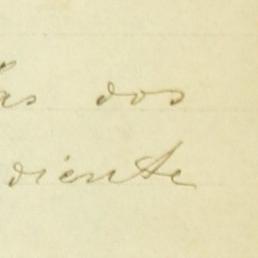 las dos
diente